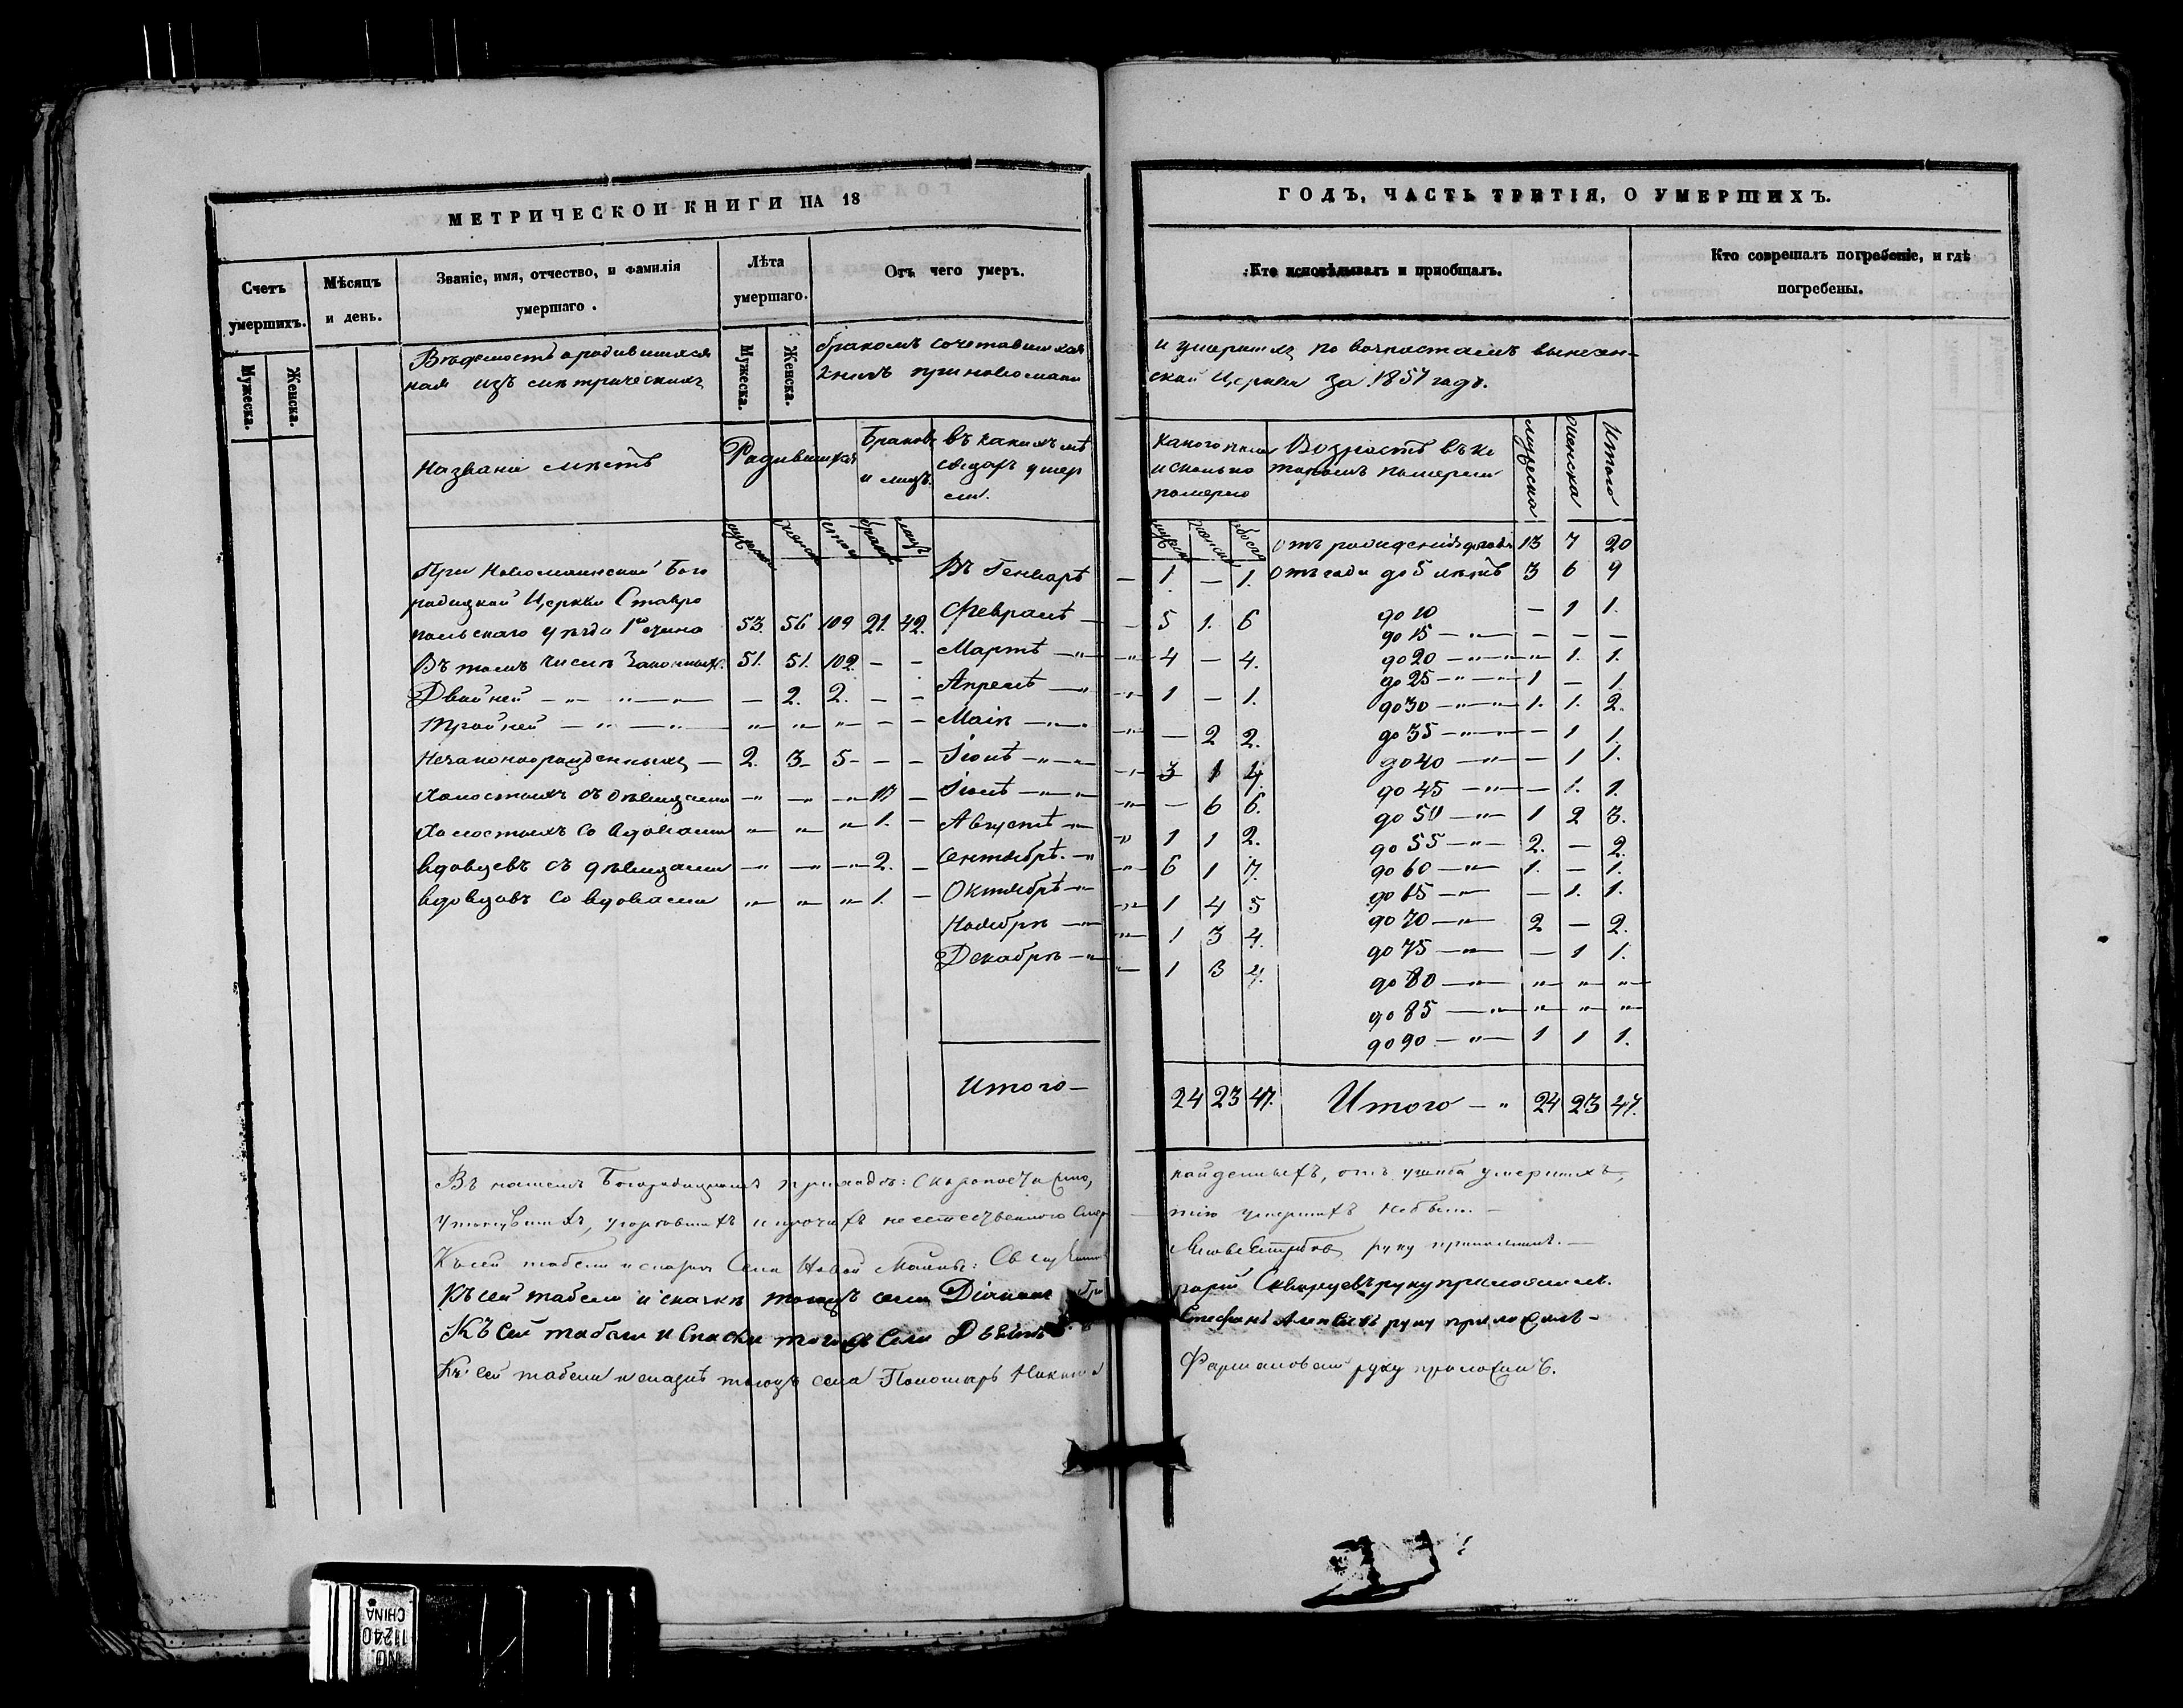 МЕТРИЧЕСКОЙ КНИГИ НА 18
ГОДЪ, ЧАСТЬ ТРЕТІЯ, О УМЕРШИХЪ.
Счетъ умершихъ.
Мужеска.
Женска.
Мѣсяцъ и день.
Званіе, имя, отчество, и фамилія умершаго.
Лѣта умершаго.
Мужеска.
Женска.
Отъ чего умеръ.
Кто исповѣдывалъ и пріобщалъ.
Кто совершалъ погребеніе, и гдѣ погребены.
Вѣдомость о родившихся бракомъ сочетавшихся и умершихъ по возрастамъ вынесен-
ная изъ метрическихъ книгъ при новомаин- ской Церкви за 1857 годъ.
Названіе мѣстъ
Родившихся
Браковъ и лицъ.
въ какихъ мѣсяцахъ умерли.
какого пола и сколько померло
Возрастъ въ котором померли
мужеска
женска
Итого
При Новомаинской Бого
родицкой Церкви Ставро
польскаго уѣзда 1го стана 53. 56 109 21. 42.
Въ томъ числѣ Законныхъ. 51. 51. 102. – –
Двойней – 2. 2. – –
Тройней – " – " – " – –
Незаконнорожденныхъ – 2. 3 – 5 – – –
Холостыхъ съ дѣвицами – " – " – " 17 –
Холостыхъ со вдовами " " " 1. –
вдовцевъ съ дѣвицами – " – " – " 2. –
вдовцовъ со вдовами " " " 1. –
Въ Генварѣ – 1. – 1.
Февралѣ – 5 1. 6
Мартѣ – " 4 – 4.
Апрелѣ – " 1 – 1.
Маіѣ – " – 2 2.
Іюнѣ – " 3 1 4.
Іюлѣ – " – 6 6.
Августѣ – " 1 1 2.
Сентябрѣ. – " 6 1 7.
Октябрѣ – " 1 4 5
Ноябрѣ – " 1 3 4.
Декабрѣ – " 1 3 4.
Итого – 24 23 47.
Отъ рожденія до года 13 7 20
Отъ года до 5 лѣтъ 3 6 9
до 10 – 1 1.
до 15 – " – – – –
до 20 – " – " 1. 1.
до 25 – " – 1 – 1
до 30 – " – 1. 1. 2.
до 35 – " – – 1 1.
до 40 – " – 1 1.
до 45 – " – 1. 1.
до 50 – " 1 2 3.
до 55 – " – 2. – 2.
до 60 – " – 1. – 1.
до 65 – " – 1. 1.
до 70 – " 2 – 2.
до 75 – " – 1 1.
до 80 – " – " – " – "
до 85 – " – " – " – "
до 90 – " – 1 1 1.
Итого – " 24 23 47.
Въ нашемъ Богородицкомъ приходѣ: найденыхъ, отъ умершихъ,
утонувшихъ, и прочихъ неестественною смер- тію умершихъ небыло. –
Къ сей табели и Села Новой Майны: руку приложилъ. –
Къ сей табели и сказкѣ тогожъ села Скворцевъ руку приложилъ.
Къ сей табели и Сказки тогожъ Села Стефанъ руку приложилъ –
Къ сей табели и сказкѣ тогожъ села Пономарь руку приложилъ.
NO. 11240
CHINA